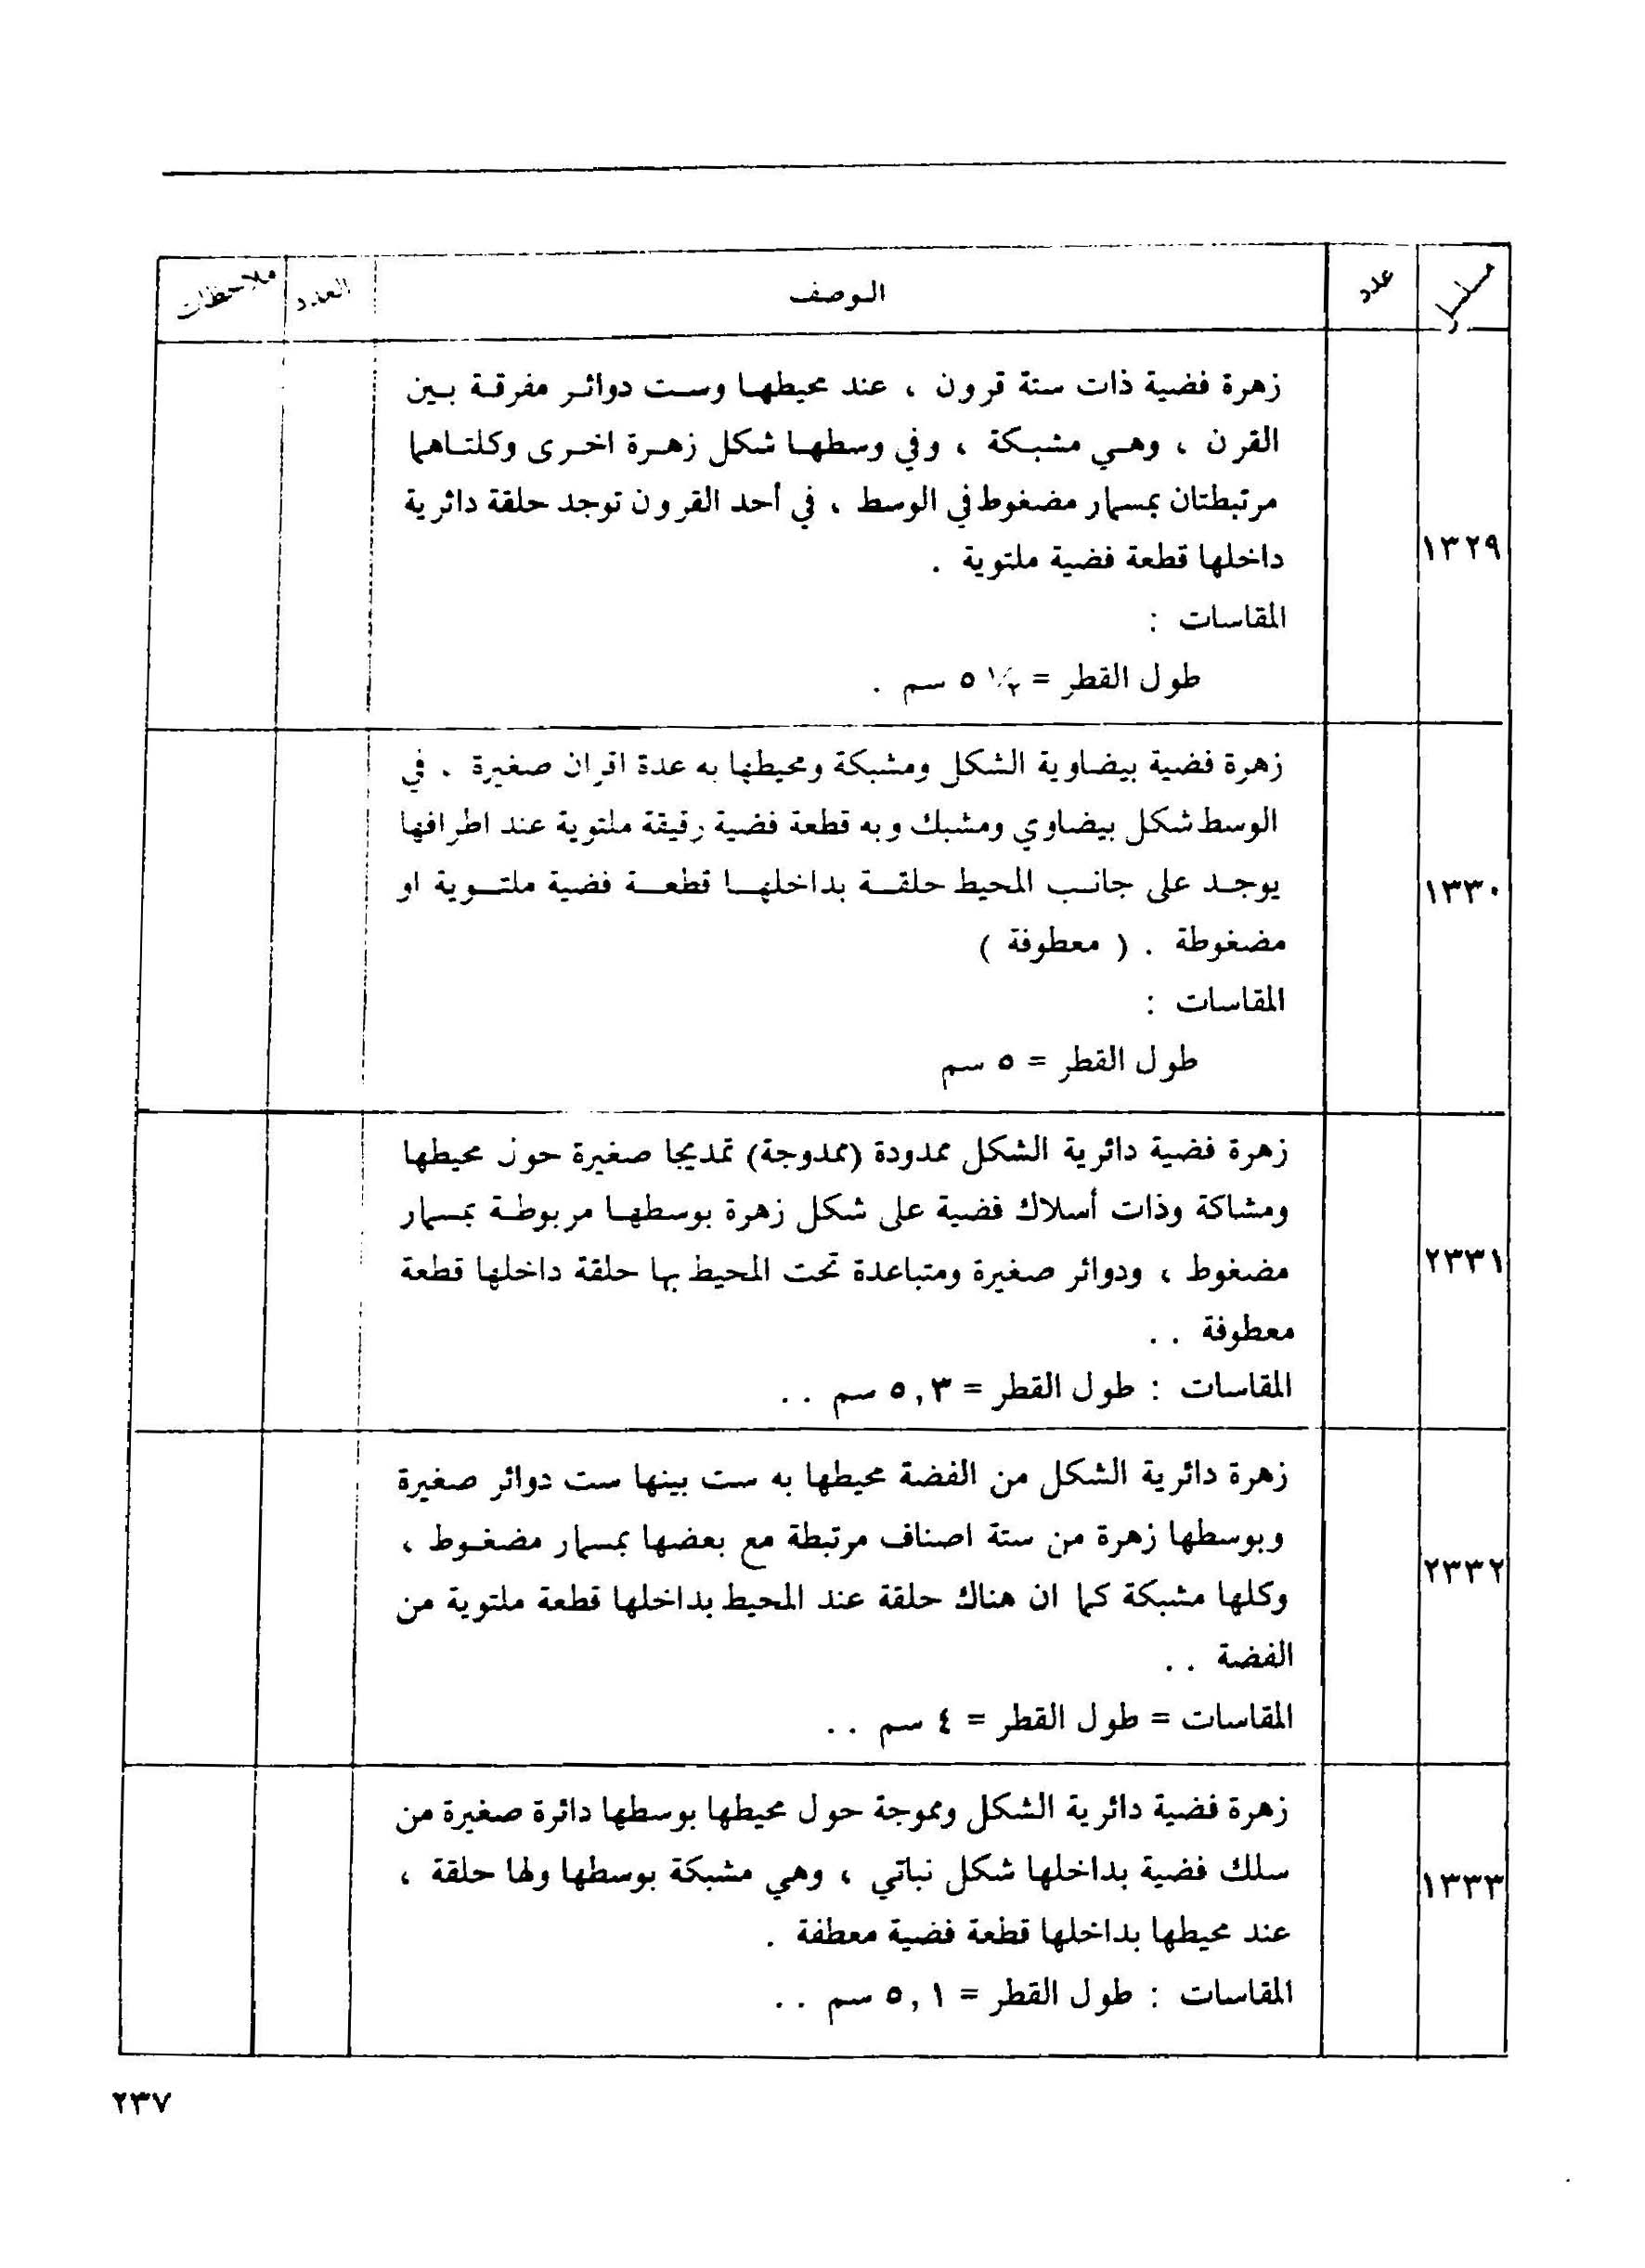 مسلسل عدد الوصف العدد ملاحظات
١٣٢٩
زهرة فضية ذات ستة قرون ، عند محيطها وست دوائر مفرقة بين
القرن ، وهي مشبكة ، وفي وسطها شكل زهرة اخرى وكلتاهما
مرتبطتان بمسمار مضغوط في الوسط ، في أحد القرون توجد حلقة دائرية
داخلها قطعة فضية ملتوية .
المقاسات :
طول القطر = ½ ٥ سم .
١٣٣٠
زهرة فضية بيضاوية الشكل ومشبكة ومحيطها به عدة اقران صغيرة . في
الوسط شكل بيضاوي ومشبك وبه قطعة فضية رقيقة ملتوية عند اطرافها
يوجد على جانب المحيط حلقة بداخلها قطعة فضية ملتوية او
مضغوطة . ( معطوفة )
المقاسات :
طول القطر = ٥ سم
٢٣٣١
زهرة فضية دائرية الشكل ممدودة (ممدوجة) تمديجا صغيرة حول محيطها
ومشاكة وذات أسلاك فضية على شكل زهرة بوسطها مربوطة بمسمار
مضغوط ، ودوائر صغيرة ومتباعدة تحت المحيط بها حلقة داخلها قطعة
معطوفة . .
المقاسات : طول القطر = ٥,٣ سم . .
٢٣٣٢
زهرة دائرية الشكل من الفضة محيطها به ست بينها ست دوائر صغيرة
وبوسطها زهرة من ستة اصناف مرتبطة مع بعضها بمسمار مضغوط ،
وكلها مشبكة كما ان هناك حلقة عند المحيط بداخلها قطعة ملتوية من
الفضة . .
المقاسات = طول القطر = ٤ سم . .
١٣٣٣
زهرة فضية دائرية الشكل ومموجة حول محيطها بوسطها دائرة صغيرة من
سلك فضية بداخلها شكل نباتي ، وهي مشبكة بوسطها ولها حلقة ،
عند محيطها بداخلها قطعة فضية معطفة .
المقاسات : طول القطر = ٥,١ سم . .
٢٣٧